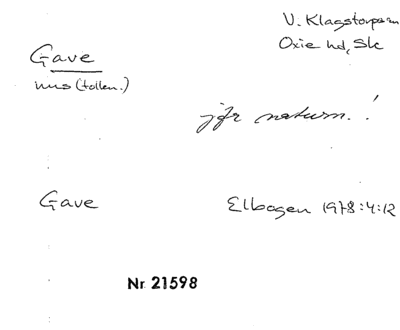 V. Klagstorps sn
Oxie hd, Sk
Gave
hus (tolkn.)
jfr naturn.!
Gave Elbogen 1978:4:12
Nr 21598